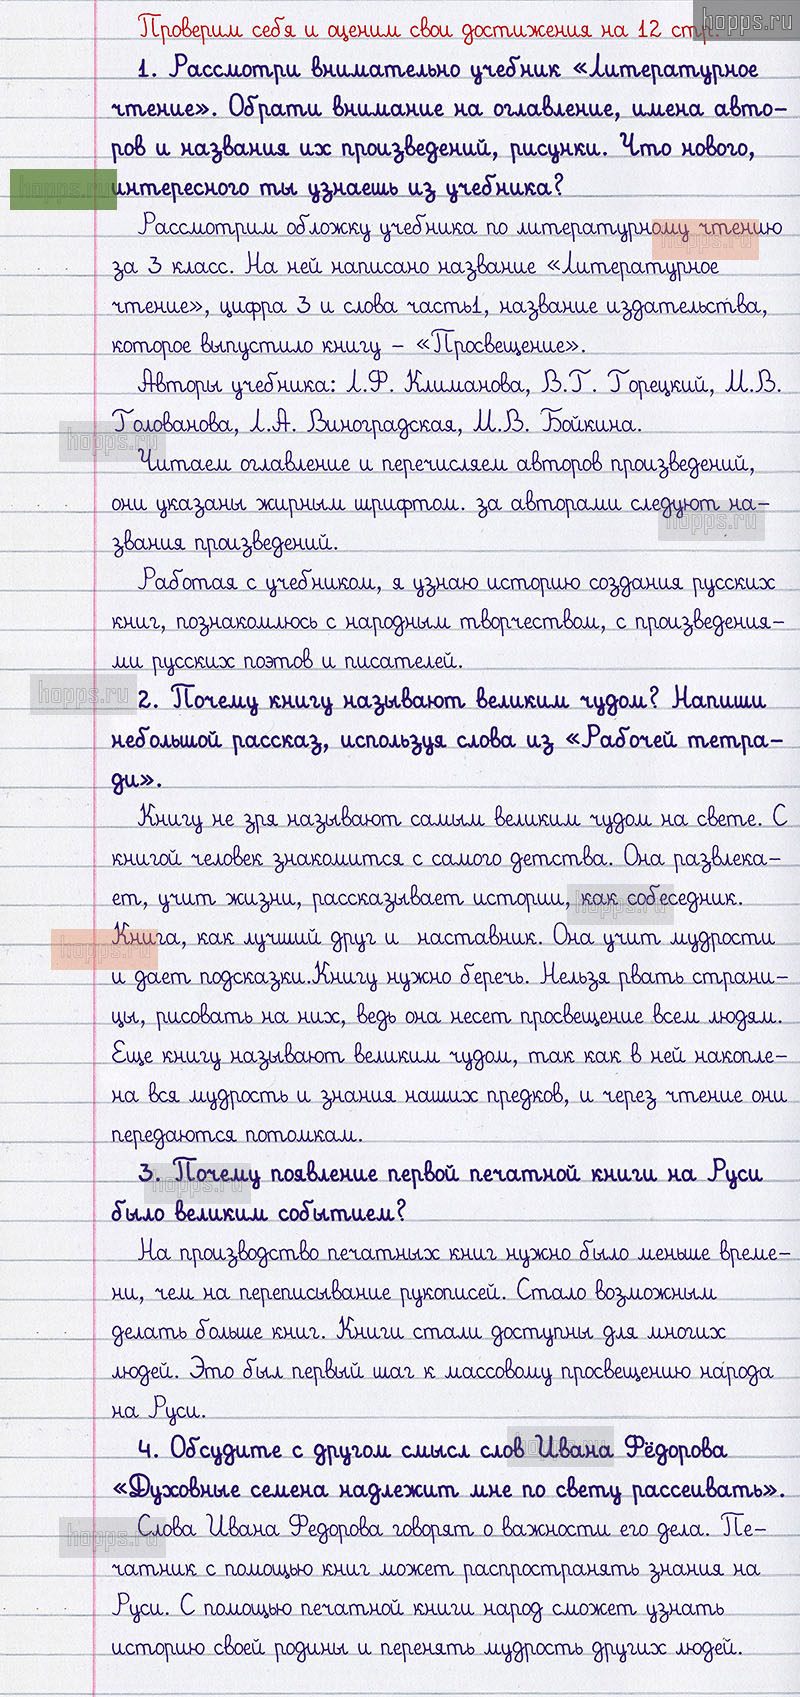 Проверим себя и оценим свои достижения на 12 стр.
hopps.ru
1. Рассмотри внимательно учебник «Литературное
чтение». Обрати внимание на оглавление, имена авто-
ров и названия их произведений, рисунки. Что нового,
hopps.ru
интересного ты узнаешь из учебника?
Рассмотрим обложку учебника по литературному чтению
hopps.ru
за 3 класс. На ней написано название «Литературное
чтение», цифра 3 и слова часть1, название издательства,
которое выпустило книгу – «Просвещение».
Авторы учебника: Л.Ф. Климанова, В.Г. Горецкий, М.В.
Голованова, Л.А. Виноградская, М.В. Бойкина.
hopps.ru
Читаем оглавление и перечисляем авторов произведений,
они указаны жирным шрифтом. за авторами следуют на-
hopps.ru
звания произведений.
Работая с учебником, я узнаю историю создания русских
книг, познакомлюсь с народным творчеством, с произведения-
ми русских поэтов и писателей.
hopps.ru
2. Почему книгу называют великим чудом? Напиши
небольшой рассказ, используя слова из «Рабочей тетра-
ди».
Книгу не зря называют самым великим чудом на свете. С
книгой человек знакомится с самого детства. Она развлека-
ет, учит жизни, рассказывает истории, как собеседник.
hopps.ru
Книга, как лучший друг и наставник. Она учит мудрости
hopps.ru
и дает подсказки.Книгу нужно беречь. Нельзя рвать страни-
цы, рисовать на них, ведь она несет просвещение всем людям.
Еще книгу называют великим чудом, так как в ней накопле-
на вся мудрость и знания наших предков, и через чтение они
передаются потомкам.
3. Почему появление первой печатной книги на Руси
hopps.ru
было великим событием?
На производство печатных книг нужно было меньше време-
ни, чем на переписывание рукописей. Стало возможным
делать больше книг. Книги стали доступны для многих
людей. Это был первый шаг к массовому просвещению народа
на Руси.
4. Обсудите с другом смысл слов Ивана Фёдорова
hopps.ru
«Духовные семена надлежит мне по свету рассеивать».
Слова Ивана Федорова говорят о важности его дела. Пе-
hopps.ru
чатник с помощью книг может распространять знания на
Руси. С помощью печатной книги народ сможет узнать
историю своей родины и перенять мудрость других людей.